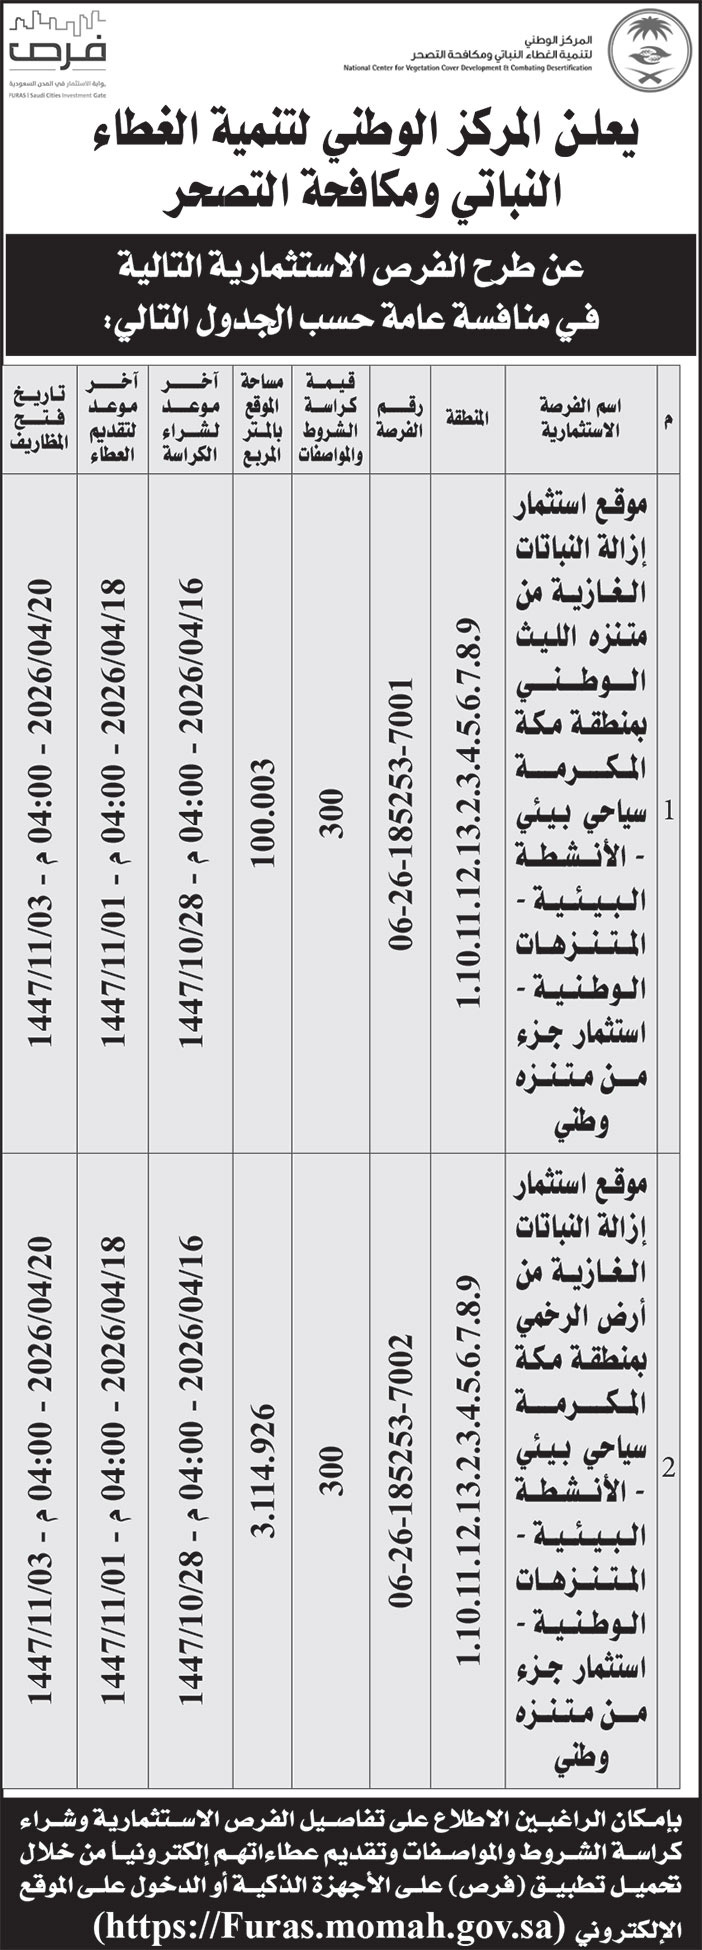 المركز الوطني
لتنمية الغطاء النباتي ومكافحة التصحر
National Center for Vegetation Cover Development & Combating Desertification
فرص
بوابة الاستثمار في المدن السعودية
FURAS | Saudi Cities Investment Gate
يعلن المركز الوطني لتنمية الغطاء
النباتي ومكافحة التصحر
عن طرح الفرص الاستثمارية التالية
في منافسة عامة حسب الجدول التالي:
م
اسم الفرصة
الاستثمارية
المنطقة
رقم
الفرصة
قيمة
كراسة
الشروط
والمواصفات
مساحة
الموقع
بالمتر
المربع
آخر
موعد
لشراء
الكراسة
آخر
موعد
لتقديم
العطاء
تاريخ
فتح
المظاريف
1
موقع استثمار
إزالة النباتات
الغازية من
متنزه الليث
الوطني
بمنطقة مكة
المكرمة
سياحي بيئي
- الأنشطة
البيئية -
المتنزهات
الوطنية -
استثمار جزء
من متنزه
وطني
1.10.11.12.13.2.3.4.5.6.7.8.9
06-26-185253-7001
300
100.003
2026/04/16 - 04:00 م - 1447/10/28
2026/04/18 - 04:00 م - 1447/11/01
2026/04/20 - 04:00 م - 1447/11/03
2
موقع استثمار
إزالة النباتات
الغازية من
أرض الرخمي
بمنطقة مكة
المكرمة
سياحي بيئي
- الأنشطة
البيئية -
المتنزهات
الوطنية -
استثمار جزء
من متنزه
وطني
1.10.11.12.13.2.3.4.5.6.7.8.9
06-26-185253-7002
300
3.114.926
2026/04/16 - 04:00 م - 1447/10/28
2026/04/18 - 04:00 م - 1447/11/01
2026/04/20 - 04:00 م - 1447/11/03
بإمكان الراغبين الاطلاع على تفاصيل الفرص الاستثمارية وشراء
كراسة الشروط والمواصفات وتقديم عطاءاتهم إلكترونياً من خلال
تحميل تطبيق (فرص) على الأجهزة الذكية أو الدخول على الموقع
الإلكتروني (https://Furas.momah.gov.sa)